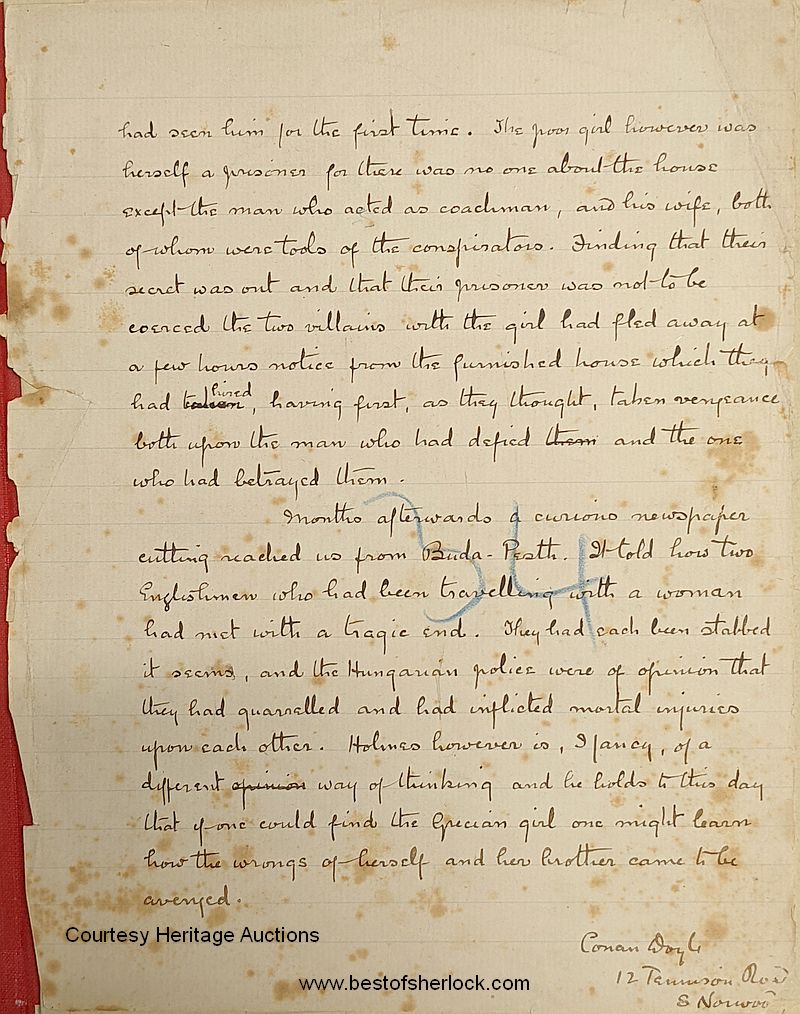 had seen him for the first time. The poor girl however was
herself a prisoner for there was no one about the house
except the man who acted as coachman, and his wife, both
of whom were tools of the conspirators. Finding that their
secret was out and that their prisoner was not to be
coerced the two villains with the girl had fled away at
a few hours notice from the furnished house which they
had taken hired, having first, as they thought, taken vengeance
both upon the man who had defied them and the one
who had betrayed them.
Months afterwards a curious newspaper
cutting reached us from Buda-Pesth. It told how two
Englishmen who had been travelling with a woman
had met with a tragic end. They had each been stabbed
it seems, and the Hungarian police were of opinion that
they had quarrelled and had inflicted mortal injuries
upon each other. Holmes however is, I fancy, of a
different opinion way of thinking and he holds to this day
that if one could find the Grecian girl one might learn
how the wrongs of herself and her brother came to be
avenged.
34
Courtesy Heritage Auctions
Conan Doyle
12 Tennison Road
S Norwood
www.bestofsherlock.com